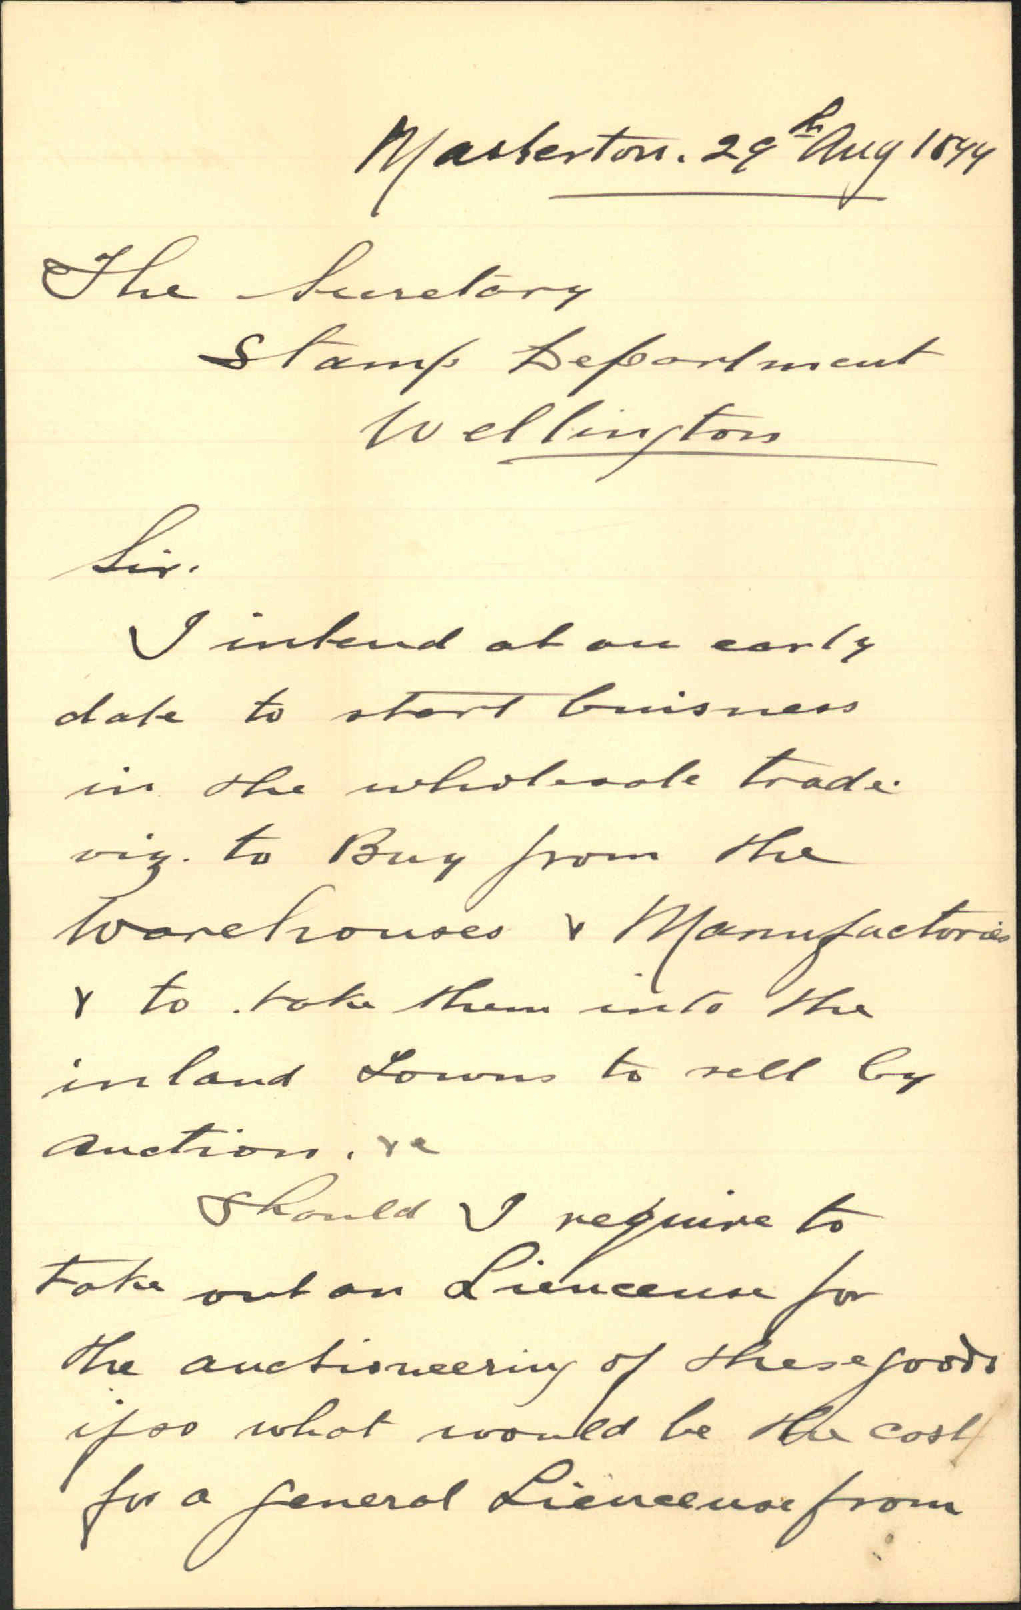 Masterton. 29th Aug 1899
The Secretary
Stamp Department
Wellington
Sir.
I intend at an early
date to start buisness
in the wholesale trade.
viz. to Buy from the
Warehouses & Manufactories
& to take them into the
inland Towns to sell by
auction. &c
Should I require to
take out an Liencense for
the auctioneering of these goods
if so what would be the cost
for a general Liencense from